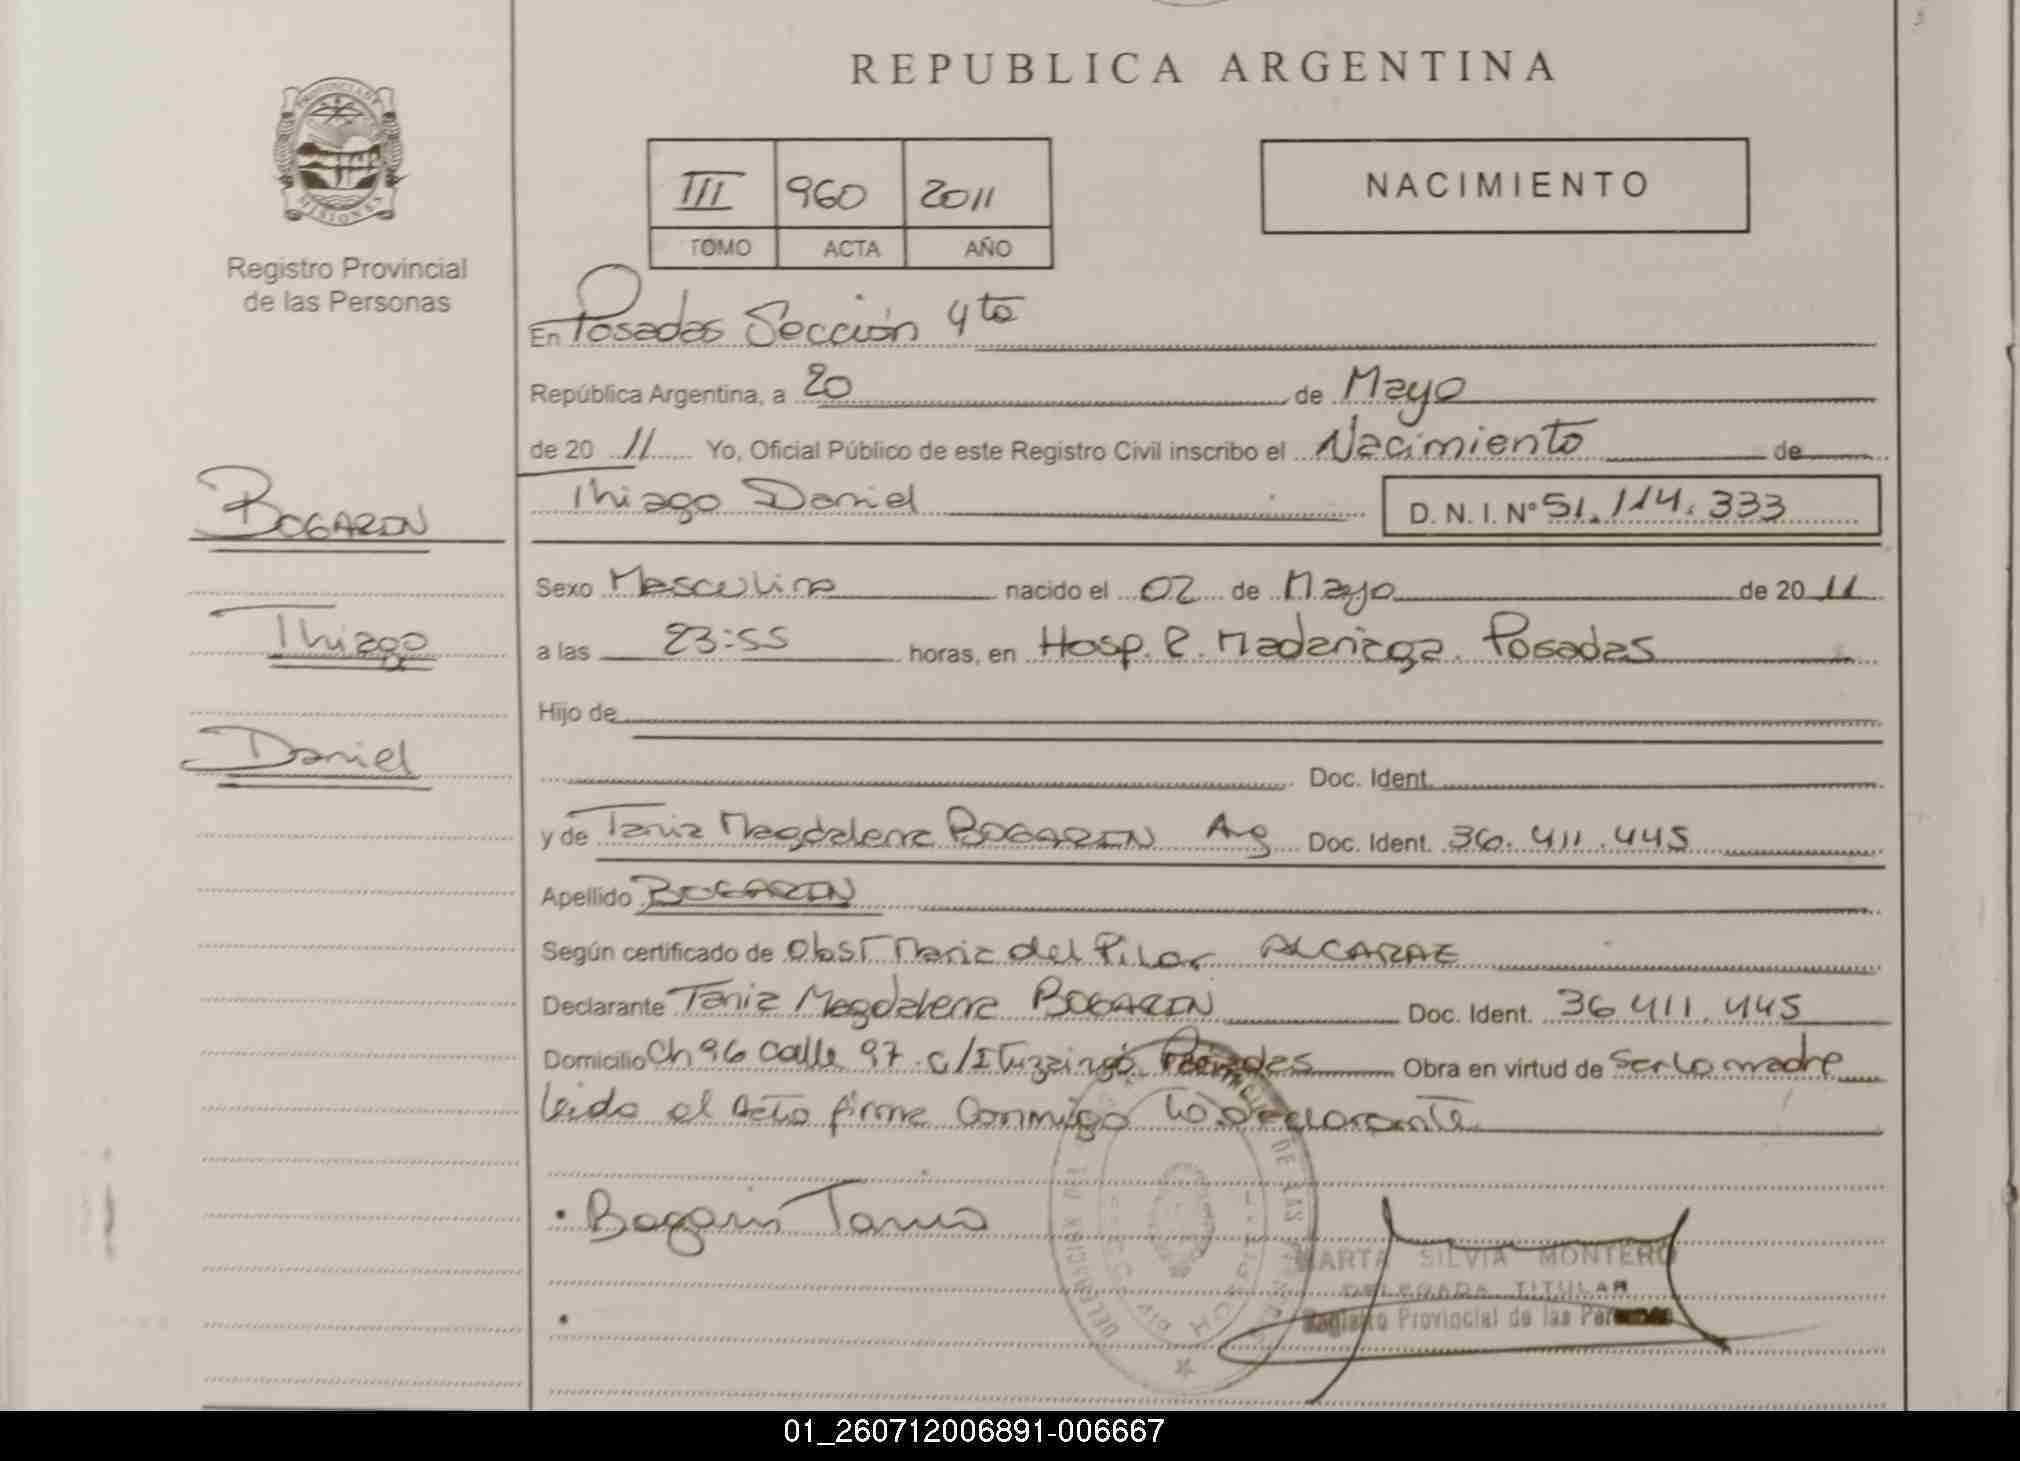 REPUBLICA ARGENTINA
PROVINCIA DE MISIONES
Registro Provincial
de las Personas
III 960 2011
TOMO ACTA AÑO
NACIMIENTO
En Posadas Sección 4ta
República Argentina, a 20 de Mayo
de 20 11 Yo, Oficial Público de este Registro Civil inscribo el Nacimiento de
Thiago Daniel D. N. I. Nº 51.114.333
BOGARIN
Thiago
Daniel
Sexo Masculino nacido el 02 de Mayo de 20 11
a las 23:55 horas, en Hosp. R. Madariaga. Posadas
Hijo de
Doc. Ident.
y de Tania Magdalena BOGARIN Arg Doc. Ident. 36.411.445
Apellido BOGARIN
Según certificado de Obst Maria del Pilar ALCARAZ
Declarante Tania Magdalena BOGARIN Doc. Ident. 36 411.445
Domicilio Ch 96 Calle 97 c/Ituzaingó Posadas Obra en virtud de ser la madre
leida el Acta firma conmigo la declarante
Bogarin Tania
MARTA SILVIA MONTERO
DELEGADA TITULAR
Registro Provincial de las Personas
01_260712006891-006667